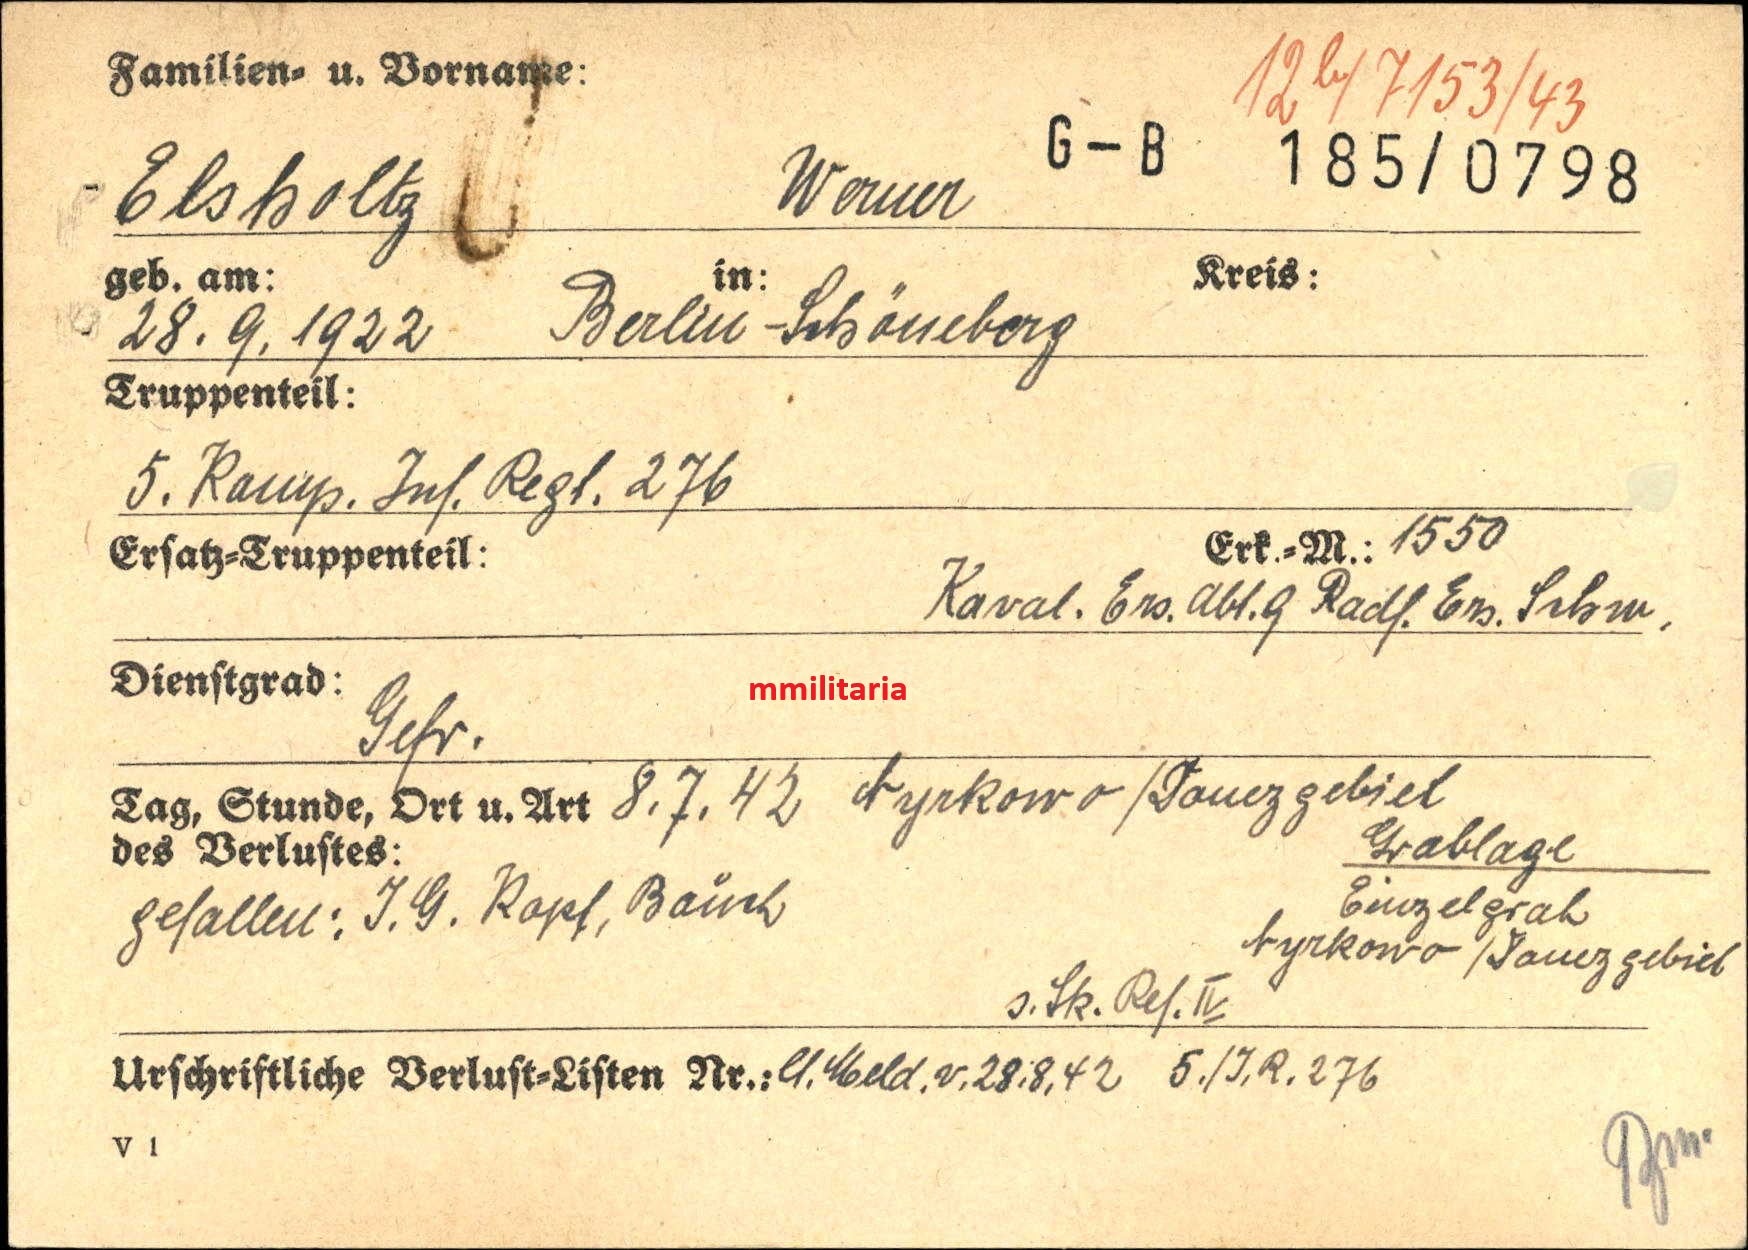 Familien- u. Vorname:
12 b/7153/43
G-B 185/0798
Elsholtz Werner
geb. am: in: Kreis:
28. 9. 1922 Berlin-Schöneberg
Truppenteil:
5. Komp. Inf. Regt. 276
Ersatz-Truppenteil: Erk.-M.: 1550
Kaval. Ers. Abt. 9 Radf. Ers. Schw.
Dienstgrad:
mmilitaria
Gefr.
Tag, Stunde, Ort u. Art 8.7.42 Nyrkowo/Donezgebiet
des Verlustes:
Grablage
gefallen: I.G. Kopf, Bauch
Einzelgrab
Nyrkowo/Donezgebiet
s. Sk. Ref. IV
Urschriftliche Verlust-Listen Nr.: Meld. v. 28.8.42 5./I.R. 276
V 1